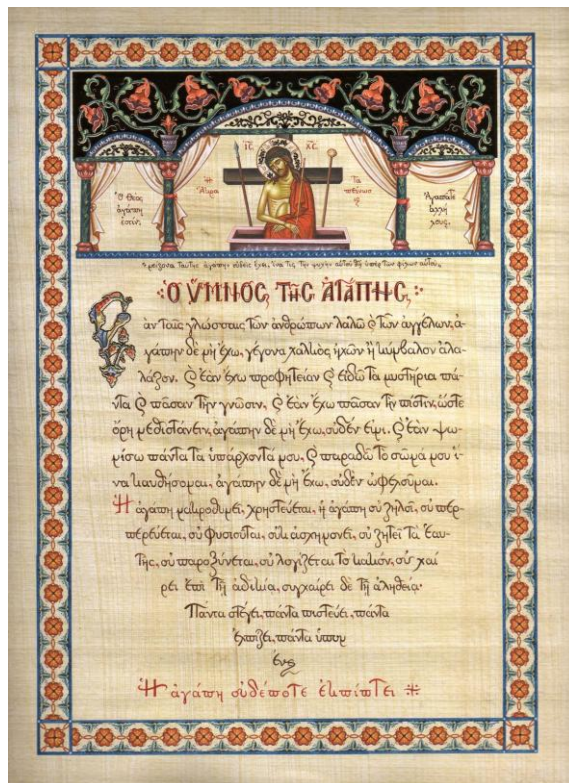 ΙC ΧC
Η Ἄκρα
Ταπείνωσις
Ὁ Θεός
ἀγάπη
ἐστίν,
Ἀγαπᾶτε
ἀλλή
λους,
μείζονα ταύτης ἀγάπην οὐδεὶς ἔχει, ἵνα τις τὴν ψυχὴν αὐτοῦ θῇ ὑπὲρ τῶν φίλων αὐτοῦ.
Ὁ ὝΜΝΟC ΤΗC ἈΓΆΠΗC
Ἐὰν ταῖς γλώσσαις τῶν ἀνθρώπων λαλῶ ϗ τῶν ἀγγέλων, ἀ-
γάπην δὲ μὴ ἔχω, γέγονα χαλκὸς ἠχῶν ἢ κύμβαλον ἀλα-
λάζον. ϗ ἐὰν ἔχω προφητείαν ϗ εἰδῶ τὰ μυστήρια πά-
ντα ϗ πᾶσαν τὴν γνῶσιν, ϗ ἐὰν ἔχω πᾶσαν τὴν πίστιν, ὥστε
ὄρη μεθιστάνειν, ἀγάπην δὲ μὴ ἔχω, οὐδέν εἰμι. ϗ ἐὰν ψω-
μίσω πάντα τὰ ὑπάρχοντά μου, ϗ παραδῶ τὸ σῶμά μου ἵ-
να καυθήσομαι, ἀγάπην δὲ μὴ ἔχω, οὐδὲν ὠφελοῦμαι.
Ἡ ἀγάπη μακροθυμεῖ, χρηστεύεται, ἡ ἀγάπη οὐ ζηλοῖ, οὐ περ-
περεύεται, οὐ φυσιοῦται, οὐκ ἀσχημονεῖ, οὐ ζητεῖ τὰ ἑαυ-
τῆς, οὐ παροξύνεται, οὐ λογίζεται τὸ κακόν, οὐ χαί
ρει ἐπὶ τῇ ἀδικίᾳ, συγχαίρει δὲ τῇ ἀληθείᾳ·
Πάντα στέγει, πάντα πιστεύει, πάντα
ἐλπίζει, πάντα ὑπομ
ένει
Ἡ ἀγάπη οὐδέποτε ἐκπίπτει